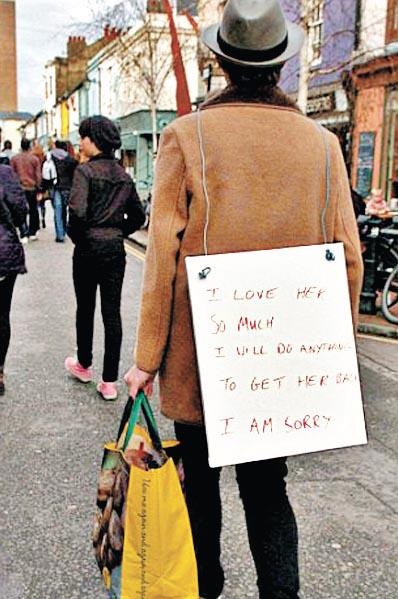 I LOVE HER
SO MUCH
I WILL DO ANYTHING
TO GET HER BACK
I AM SORRY